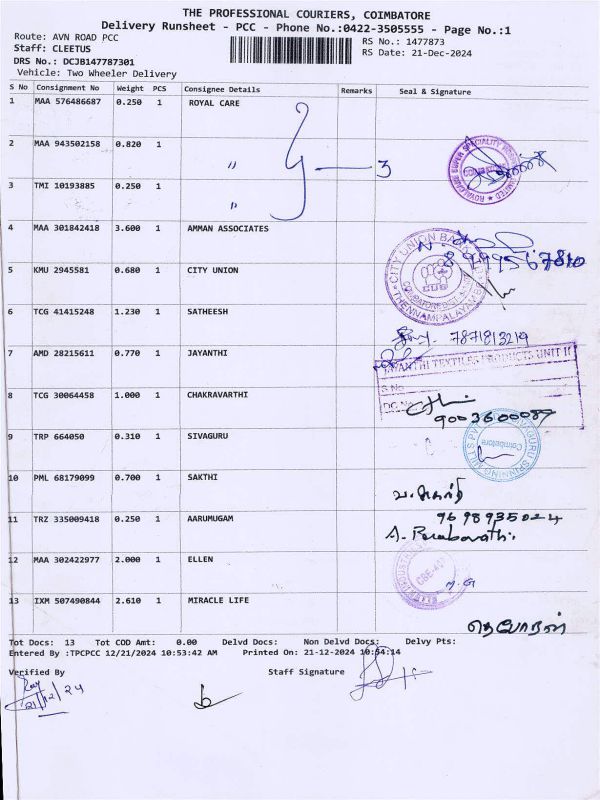 THE PROFESSIONAL COURIERS, COIMBATORE
Delivery Runsheet - PCC - Phone No.:0422-3505555 - Page No.:1
Route: AVN ROAD PCC
RS No.: 1477873
Staff: CLEETUS
RS Date: 21-Dec-2024
DRS No.: DCJB147787301
Vehicle: Two Wheeler Delivery
S No Consignment No Weight PCS Consignee Details Remarks Seal & Signature
1 MAA 576486687 0.250 1 ROYAL CARE
2 MAA 943502158 0.820 1 〃
3
3 TMI 10193885 0.250 1 〃
4 MAA 301842418 3.600 1 AMMAN ASSOCIATES
CITY UNION BANK
8999567810
5 KMU 2945581 0.680 1 CITY UNION
CUB
THENNAMPALAYAM
6 TCG 41415248 1.230 1 SATHEESH
7871813219
7 AMD 28215611 0.770 1 JAYANTHI
TEXTILES PRODUCTS UNIT II
S.No
8 TCG 30064458 1.000 1 CHAKRAVARTHI
9003600087
9 TRP 664050 0.310 1 SIVAGURU
SIVAGURU SPINNING MILLS
Coimbatore
10 PML 68179099 0.700 1 SAKTHI
11 TRZ 335009418 0.250 1 AARUMUGAM
9698935024
A. Parabavathi.
12 MAA 302422977 2.000 1 ELLEN
13 IXM 507490844 2.610 1 MIRACLE LIFE
Tot Docs: 13 Tot COD Amt: 0.00 Delvd Docs: Non Delvd Docs: Delvy Pts:
Entered By :TPCPCC 12/21/2024 10:53:42 AM Printed On: 21-12-2024 10:54:14
Verified By Staff Signature
21/12/24